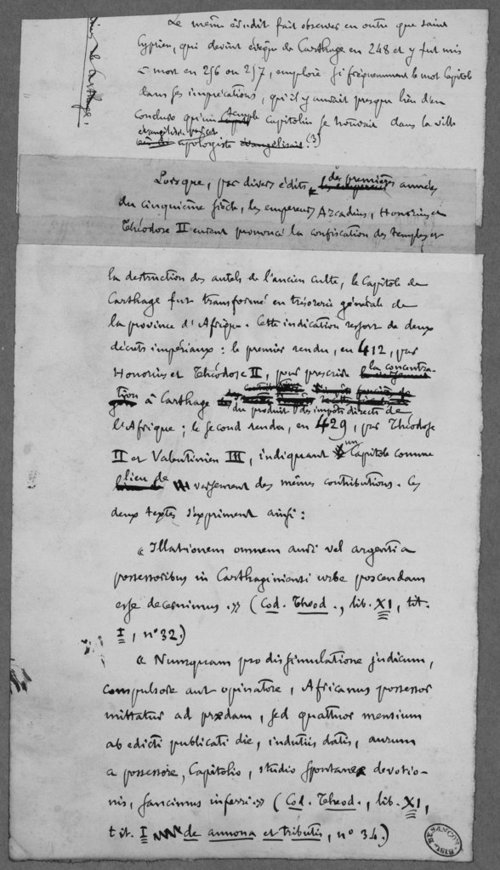 Le même érudit fait observer en outre que saint
Cyprien, qui devint évêque de Carthage en 248 et y fut mis
à mort en 256 ou 257, emploie si fréquemment le mot Capitole
dans ses imprécations, qu'il y aurait presque lieu d'en
conclure qu'un temple capitolin se trouvait dans la ville
évangélisée par cet apologiste. (3)
Lorsque, par divers édits, des premières années
du cinquième siècle, les empereurs Arcadius, Honorius et
Théodose II eurent prononcé la confiscation des temples et
la destruction des autels de l'ancien culte, le Capitole de
Carthage fut transformé en trésorerie générale de
la province d'Afrique. Cette indication ressort de deux
décrets impériaux : le premier rendu, en 412, par
Honorius et Théodose II, pour prescrire la concentra-
tion à Carthage du produit des impôts directs de
l'Afrique ; le second rendu, en 429, par Théodose
II et Valentinien III, indiquant un Capitole comme
lieu de versement des mêmes contributions. Ces
deux textes s'expriment ainsi :
« Illationem omnem auri vel argenti a
possessoribus in Carthaginiensi urbe poscendam
esse decernimus. » (Cod. Theod., lib. XI, tit.
I, n° 32.)
« Numquam pro dissimulatione judicum,
compulsore aut opinatore, Africanus possessor
mittatur ad prædam, sed quattuor mensium
ab edicti publicati die, indutiis datis, aurum
a possessore, Capitolio, studio spontaneæ devotio-
nis, sancimus inferri. » (Cod. Theod., lib. XI,
tit. I de annona et tributis, n° 34.)
BESANÇON